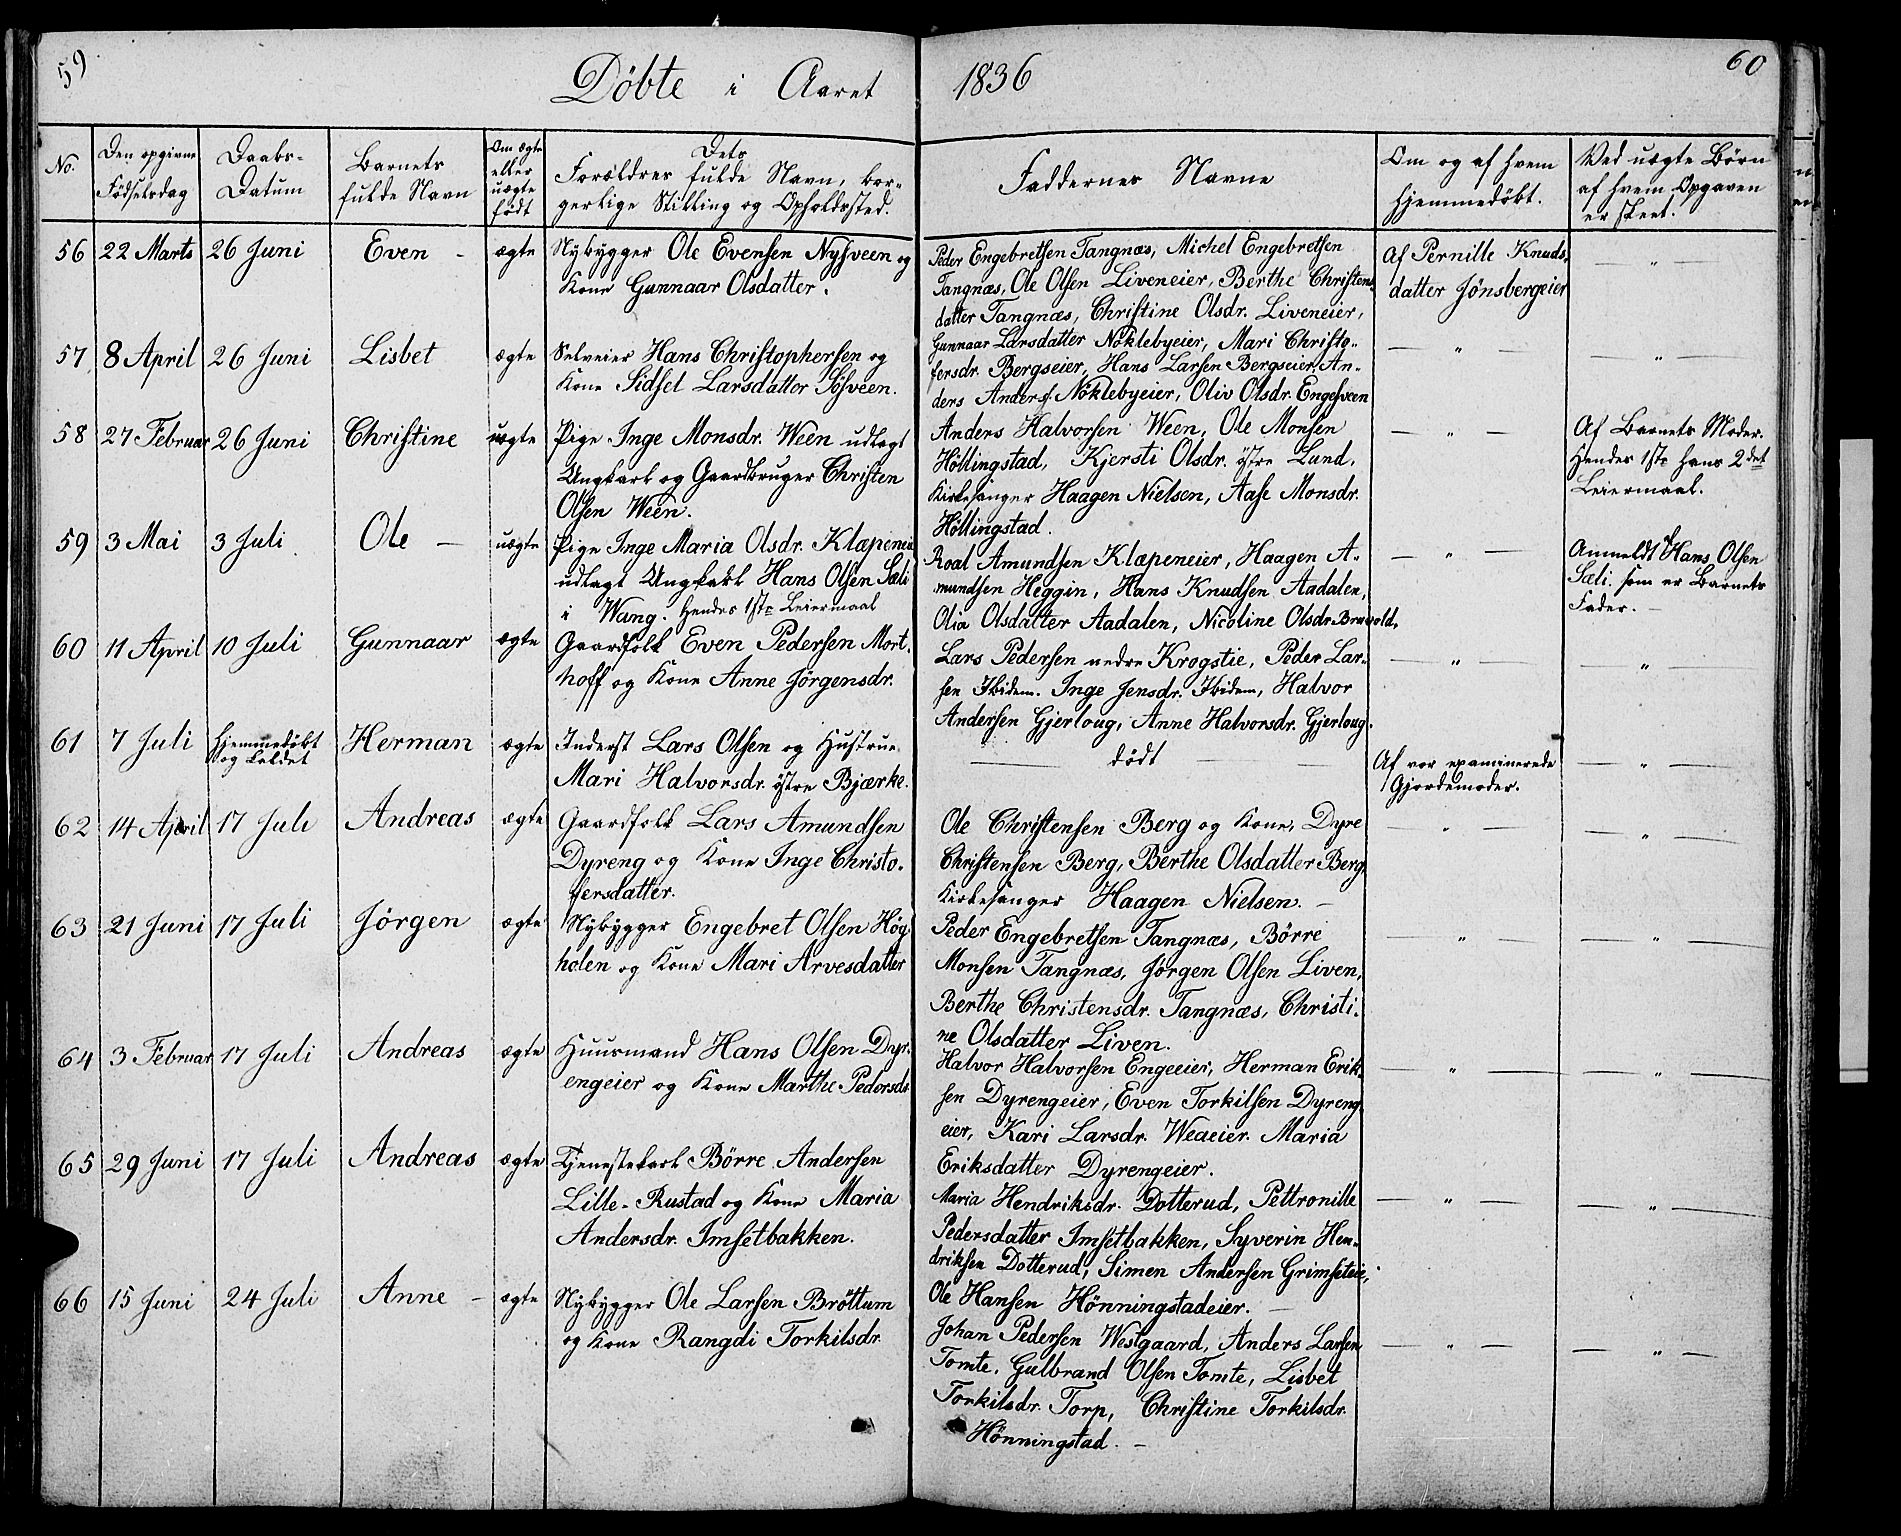 59
Döbte i Aaret 1836
60
No.
Den opgivne
Födselsdag
Daabs-
Datum
Barnets
fulde Navn
Om ægte
eller
uægte
födt
Dets
Forældres fulde Navn, bor-
gerlige Stilling og Opholdssted.
Faddernes Navne
Om og af hvem
hjemmedöbt.
Ved uægte Börn
af hvem Opgaven
er skeet.
56 22 Marts 26 Juni Even - ægte
Nybygger Ole Evensen Nysveen og
Kone Gunnaar Olsdatter.
Peder Engebretsen Tangnæs, Michel Engebretsen
Tangnæs, Ole Olsen Liveneier, Berthe Christens-
datter Tangnæs, Christine Olsdr. Liveneier,
Af Pernille Knuds-
datter Jönsbergeier
— " —
57 8 April 26 Juni Lisbet ægte
Selveier Hans Christophersen og
Kone Sidsel Larsdatter Sösveen.
Gunnaar Larsdatter Nöklebyeier, Mari Christo-
fersdr. Bergseier, Hans Larsen Bergseier, An-
ders Anders. Nöklebyeier, Oliv Olsdr. Engesveen
— " —
— " —
58 27 Februar 26 Juni Christine uægte
Pige Inge Monsdr. Ween udlagt
Ungkarl og Gaardbruger Christen
Olsen Ween.
Anders Halvorsen Ween, Ole Monsen
Höllingstad, Kjersti Olsdr. östre Lund,
Kirkesanger Haagen Nielsen, Aase Monsdr.
Höllingstad.
— " —
Af Barnets Moder.
Hendes 1ste hans 2det
Leiermaal.
59 3 Mai 3 Juli Ole - uægte
Pige Inge Maria Olsdr. Klæpeneie
udlagt Ungkarl Hans Olsen Sæli
i Wang. Hendes 1ste Leiermaal
Roal Amundsen Klæpeneier, Haagen A-
mundsen Heggin, Hans Knudsen Aadalen,
Olia Olsdatter Aadalen, Nicoline Olsdr. Bruvold,
— " —
Anmeldt Hans Olsen
Sæli. som er Barnets
Fader. -
60 11 April 10 Juli Gunnaar ægte
Gaardfolk Even Pedersen Mort-
hoff og Kone Anne Jörgensdr.
Lars Pedersen nedre Krogstie, Peder Lar-
sen Ibidem. Inge Jensdr. Ibidem, Halvor
Andersen Gjerloug, Anne Halvorsdr. Gjerloug.
— " —
— " —
61 7 Juli Hjemmedöbt
og kaldet
Herman ægte
Inderst Lars Olsen og Hustrue
Mari Halvorsdr. östre Bjærke.
— dödt —
Af vor examinerede
Gjordemoder.
— " —
62 14 April 17 Juli Andreas ægte
Gaardfolk Lars Amundsen
Dyreng og Kone Inge Christo-
fersdatter.
Ole Christensen Berg og Kone, Dyre
Christensen Berg, Berthe Olsdatter Berg
Kirkesanger Haagen Nielsen. —
— " —
— " —
63 21 Juni 17 Juli Jörgen ægte
Nybygger Engebret Olsen Hög-
holen og Kone Mari Arvesdatter
Peder Engebretsen Tangnæs, Börre
Monsen Tangnæs, Jörgen Olsen Liven,
Berthe Christensdr. Tangnæs, Christi-
ne Olsdatter Liven.
— " —
— " —
64 3 Februar 17 Juli Andreas ægte
Huusmand Hans Olsen Dyr-
engeier og Kone Marthe Pedersdr
Halvor Halvorsen Engeeier, Herman Erik-
sen Dyrengeier, Even Torkilsen Dyreng
eier, Kari Larsdr. Weaeier. Maria
Eriksdatter Dyrengeier.
— " —
— " —
65 29 Juni 17 Juli Andreas ægte
Tjenestekarl Börre Andersen
Lille-Rustad og Kone Maria
Andersdr. Imsetbakken.
Maria Hendriksdr. Dotterud, Pettronille
Pedersdatter Imsetbakken, Syverin Hen-
driksen Dotterud, Simen Andersen Grimseteie,
Ole Hansen Hönningstadeier. —
— " —
— " —
66 15 Juni 24 Juli Anne - ægte
Nybygger Ole Larsen Bröttum
og Kone Rangdi Torkilsdr.
Johan Pedersen Westgaard, Anders Larsen
Tomte, Gulbrand Olsen Tomte, Lisbet
Torkilsdr. Torp, Christine Torkilsdr.
Hönningstad. —
— " —
— " —